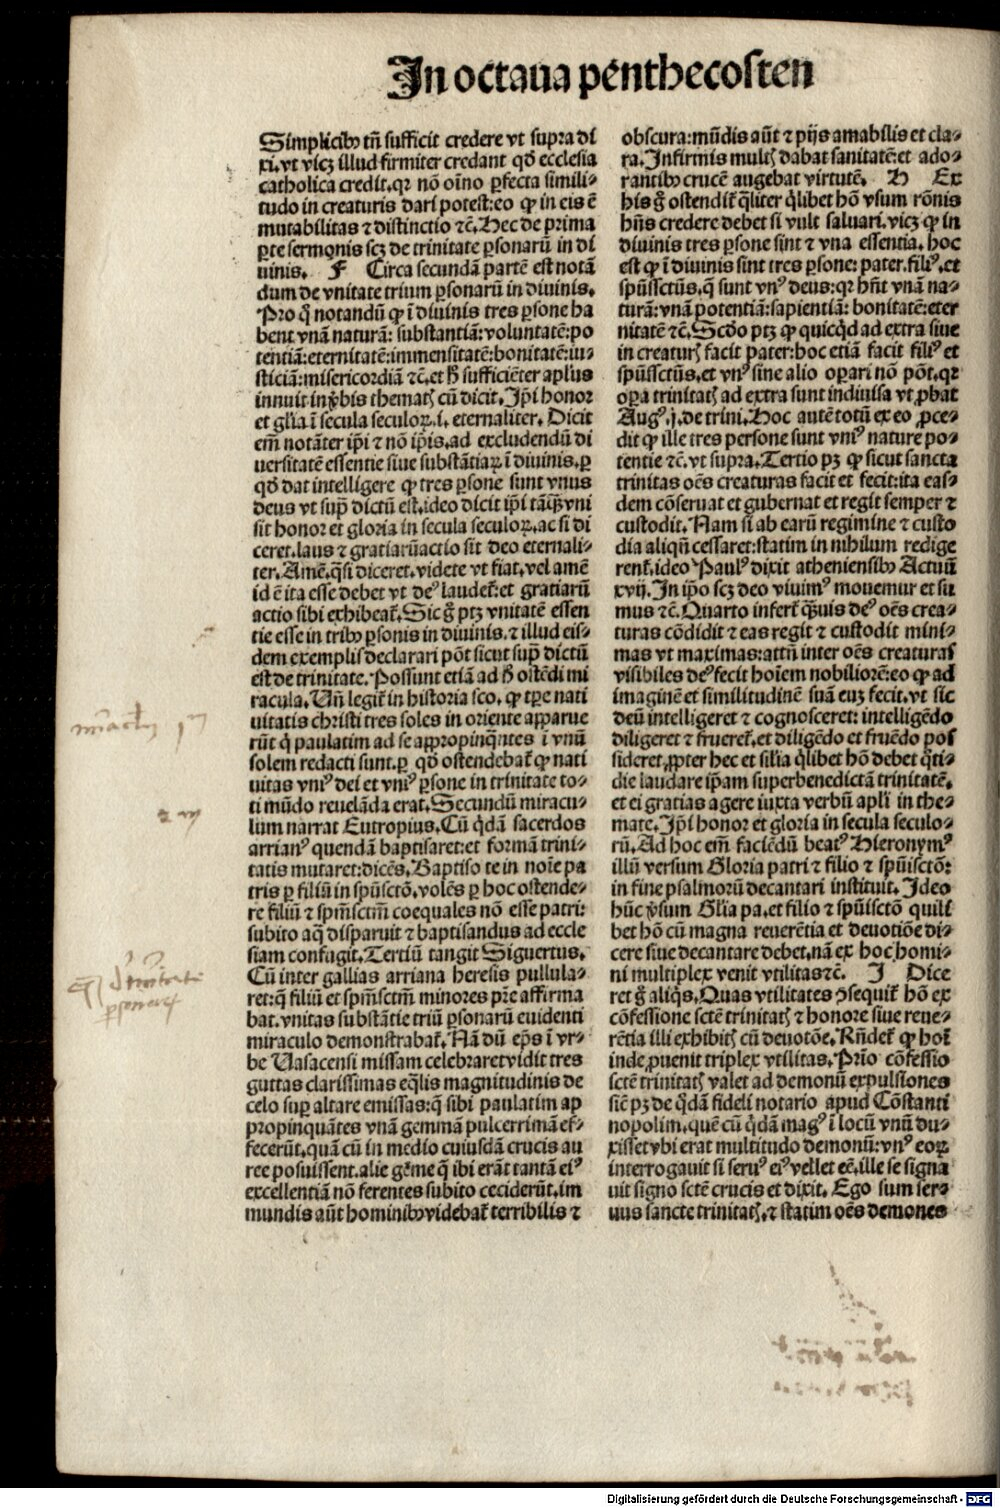 In octaua penthecosten
Simplicibꝰ tñ sufficit credere vt supra di
xi. vt vicꝫ illud firmiter credant qd̕ ecclesia
catholica credit. qꝛ nõ oĩno ꝑfecta simili⸗
tudo in creaturis dari potest: eo ꝙ in eis ẽ
mutabilitas ⁊ distinctio ⁊c̃. Hec de prima
ꝑte sermonis scꝫ de trinitate ꝑsonarũ in di
uinis. F Circa secundã partẽ est notã
dum de vnitate trium ꝑsonarũ in diuinis.
Pro q̃ notandũ ꝙ ĩ diuinis tres ꝑsone ha
bent vnã naturã: substantiã: voluntatẽ: po
tentiã: eternitatẽ: immensitatẽ: bonitatẽ: iu⸗
sticiã: misericordiã ⁊c̃. et h̕ sufficiẽter aplus
innuit in ṽbis thematꝭ cũ dicit. Ip̃i honor
et gl̃ia ĩ secula seculoꝝ. i. eternaliter. Dicit
em̃ notãter ip̃i ⁊ nõ ip̃is. ad excludendũ di
uersitatẽ essentie siue substãtiaꝝ ĩ diuinis. ꝑ
qd̕ dat intelligere ꝙ tres ꝑsone sunt vnus
deus vt supͣ dictũ est. ideo dicit ip̃i tãꝗ̃ vni
sit honor et gloria in secula seculoꝝ. ac si di
ceret. laus ⁊ gratiarũactio sit deo eternali⸗
ter. Amẽ. q̃si diceret. videte vt fiat. vel amẽ
id ẽ ita esse debet vt deꝰ laudet̃: et gratiarũ
actio sibi exhibeat̃. Sic g̃ ptꝫ vnitatẽ essen
tie esse in tribꝰ ꝑsonis in diuinis. ⁊ illud eis⸗
dem exemplis declarari põt sicut supͣ dictũ
est de trinitate. Possunt etiã ad h̕ ostẽdi mi
racula. Vñ legit̃ in historia sco. ꝙ tꝑe nati
uitatis christi tres soles in oriente apparue
rũt q̃ paulatim ad se appropinq̃ntes ĩ vnũ
solem redacti sunt. ꝑ qd̕ ostendebat̃ ꝙ nati
uitas vniꝰ dei et vniꝰ ꝑsone in trinitate to⸗
ti mũdo reuelãda erat. Secundũ miracu⸗
lum narrat Eutropius. Cũ q̃dã sacerdos
arrianꝰ quendã baptisaret: et formã trini⸗
tatis mutaret: dicẽs. Baptiso te in noĩe pa
tris ꝑ filiũ in spũsctõ. volẽs ꝑ hoc ostende⸗
re filiũ ⁊ spm̃sctm̃ coequales nõ esse patri:
subito aq̃ disparuit ⁊ baptisandus ad eccle
siam confugit. Tertiũ tangit Siguertus.
Cũ inter gallias arriana heresis pullula⸗
ret: q̃ filiũ et spm̃sctm̃ minores pr̃e affirma
bat. vnitas substãtie triũ ꝑsonarũ euidenti
miraculo demonstrabat̃. Nã dũ ep̃s ĩ vr⸗
be Vasacensi missam celebraret vidit tres
guttas clarissimas eq̃lis magnitudinis de
celo suꝑ altare emissas: q̃ sibi paulatim ap
propinquãtes vnã gemmã pulcerrimã ef⸗
fecerũt. quã cũ in medio cuiusdã crucis au
ree posuissent. alie gẽme q̃ ibi erãt tantã eiꝰ
excellentiã nõ ferentes subito ceciderũt. im
mundis aũt hominibꝰ videbat̃ terribilis ⁊
obscura: mũdis aũt ⁊ pijs amabilis et cla⸗
ra. Infirmis multꝭ dabat sanitatẽ: et ado⸗
rantibꝰ crucẽ augebat virtutẽ. H Ex
his g̃ ostendit̃ q̃liter q̃libet hõ vsum rõnis
hñs credere debet si vult saluari. vicꝫ ꝙ in
diuinis tres ꝑsone sint ⁊ vna essentia. hoc
est ꝙ ĩ diuinis sint tres ꝑsone: pater. filiꝰ. et
spũssctũs. q̃ sunt vnꝰ deus: qꝛ hñt vnã na⸗
turã: vnã potentiã: sapientiã: bonitatẽ: eter
nitatẽ ⁊c̃. Scd̕o ptꝫ ꝙ quicq̃d ad extra siue
in creaturꝭ facit pater: hoc etiã facit filiꝰ et
spũssctũs. et vnꝰ sine alio oꝑari nõ põt. qꝛ
oꝑa trinitatꝭ ad extra sunt indiuisa vt ꝓbat
Augꝰ. j. de trini. Hoc autẽ totũ ex eo ꝓce⸗
dit ꝙ ille tres persone sunt vniꝰ nature po⸗
tentie ⁊c̃. vt supra. Tertio pꝫ ꝙ sicut sancta
trinitas oẽs creaturas facit et fecit: ita eas⸗
dem cõseruat et gubernat et regit semper ⁊
custodit. Nam si ab earũ regimine ⁊ custo
dia aliqñ cessaret: statim in nihilum redige
rent̃. ideo Paulꝰ dixit atheniensibꝰ Actuũ
xvij. In ip̃o scꝫ deo viuimꝰ mouemur et su
mus ⁊c̃. Quarto infert̃ ꝙ̃uis deꝰ oẽs crea⸗
turas cõdidit ⁊ eas regit ⁊ custodit mini⸗
mas vt maximas: attñ inter oẽs creaturas
visibiles deꝰ fecit hoĩem nobiliorẽ: eo ꝙ ad
imaginẽ et similitudinẽ suã euꝫ fecit. vt sic
deũ intelligeret ⁊ cognosceret: intelligẽdo
diligeret ⁊ frueret̃. et diligẽdo et fruẽdo pos
sideret. ꝓpter hec et silia q̃libet hõ debet q̃ti⸗
die laudare ip̃am superbenedictã trinitatẽ.
et ei gratias agere iuxta verbũ apli in the⸗
mate. Ip̃i honor et gloria in secula seculo⸗
rũ. Ad hoc em̃ faciẽdũ beatꝰ Hieronymꝰ
illũ versum Gloria patri ⁊ filio ⁊ spũisctõ:
in fine psalmorũ decantari instituit. Ideo
hũc ṽsum Gl̃ia pa. et filio ⁊ spũisctõ quili
bet hõ cũ magna reuerẽtia et deuotiõe di⸗
cere siue decantare debet. nã ex hoc homi⸗
ni multiplex venit vtilitas ⁊c̃. I Dice
ret g̃ aliq̃s. Quas vtilitates ꝯsequit̃ hõ ex
cõfessione sctẽ trinitatꝭ ⁊ honore siue reue⸗
rẽtia illi exhibitꝭ cũ deuotõe. Rñdet̃ ꝙ hoĩ
inde ꝓuenit triplex vtilitas. Prĩo cõfessio
sctẽ trinitatꝭ valet ad demonũ expulsiones
sic̃ pꝫ de q̃dã fideli notario apud Cõstanti
nopolim. quẽ cũ q̃dã magꝰ ĩ locũ vnũ du⸗
xisset vbi erat multitudo demonũ: vnꝰ eoꝝ
interrogauit si seruꝰ eiꝰ vellet eẽ. ille se signa
uit signo sctẽ crucis et dixit. Ego sum ser⸗
uus sancte trinitatꝭ. ⁊ statim oẽs demones
Digitalisierung gefördert durch die Deutsche Forschungsgemeinschaft - DFG